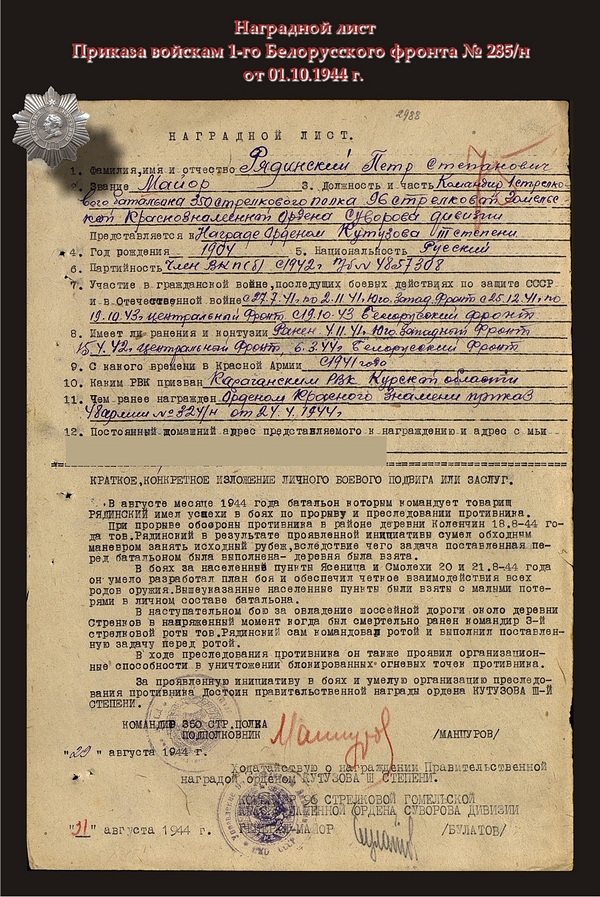 Наградной лист
Приказа войскам 1-го Белорусского фронта № 285/н
от 01.10.1944 г.
2988
НАГРАДНОЙ ЛИСТ.
1. Фамилия,имя и отчество Рядинский Петр Степанович
2. Звание Майор 3. Должность и часть Командир 1 стрелко-
вого батальона 350 стрелкового полка 96 стрелковой Гомельс-
кой Краснознаменной Ордена Суворова дивизии
Представляется к Награде Орденом Кутузова III степени.
4. Год рождения 1904 5. Национальность Русский
6. Партийность Член ВКП(б) с 1942г п/б № 4857308
7. Участие в гражданской войне,последущих боевых действиях по защите СССР
и в Отечественной войне с 27.7.41г по 2.11.41 Юго.Запад.Фронт с 25.12.41 по
19.10.43г центральный Фронт с 19.10.43 Белорусский фронт
8. Имеет ли ранения и контузии Ранен 4.11.41 Юго.Западный Фронт
15.4.42г центральный Фронт, 6.3.44г Белорусский Фронт
9. С какого времени в Красной Армии с 1941 года
10. Каким РВК призван Караганским РВК Курской области
11. Чем ранее награжден Орденом Красного Знамени приказ
48 армии № 324/н от 24.4.1944г
12. Постоянный домашний адрес представляемого к награждению и адрес с мьи
КРАТКОЕ,КОНКРЕТНОЕ ИЗЛОЖЕНИЕ ЛИЧНОГО БОЕВОГО ПОДВИГА ИЛИ ЗАСЛУГ.
В августе месяце 1944 года батальон которым командует товарищ
РЯДИНСКИЙ имел успехи в боях по прорыву и преследовании противника.
При прорыве обороны противника в районе деревни Коленчин 18.8-44 го-
да тов.Рядинский в результате проявленной инициативы сумел обходным
маневром занять исходный рубеж,вследствие чего задача поставленная пе-
ред батальоном была выполнена- деревня была взята.
В боях за населенные пункты Ясеница и Смолехи 20 и 21.8-44 года
он умело разработал план боя и обеспечил четкое взаимодействия всех
родов оружия.Вышеуказанные населенные пункты были взяты с малыми поте-
рями в личном составе батальона.
В наступательном бою за овладение шоссейной дороги около деревни
Стренков в напряженный момент когда был смертельно ранен командир 3-й
стрелковой роты тов.Рядинский сам командовал ротой и выполнил поставлен-
ную задачу перед ротой.
В ходе преследования противника он также проявил организацион-
ные способности в уничтожении блокированных огневых точек противника.
За проявленную инициативу в боях и умелую организацию преследо-
вания противника Достоин правительственной награды ордена КУТУЗОВА Ш-Й
СТЕПЕНИ.
КОМАНДИР 350 СТР.ПОЛКА
ПОДПОЛКОВНИК Маншуров /МАНШУРОВ/
"29" августа 1944 г.
Ходатайствую о награждении Правительственной
наградой орденом КУТУЗОВА Ш СТЕПЕНИ.
КОМАНДИР 96 СТРЕЛКОВОЙ ГОМЕЛЬСКОЙ
КРАСНОЗНАМЕННОЙ ОРДЕНА СУВОРОВА ДИВИЗИИ
ГЕНЕРАЛ-МАЙОР /БУЛАТОВ/
"31" августа 1944 г.